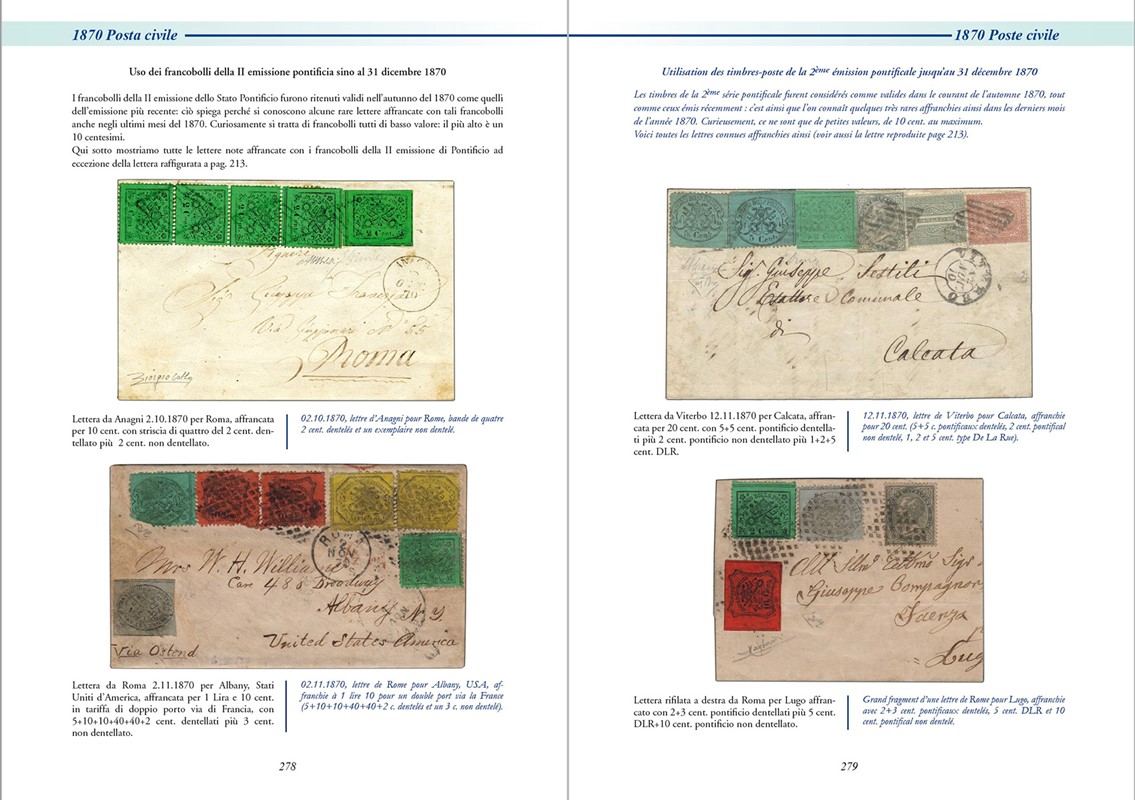 1870 Posta civile
Uso dei francobolli della II emissione pontificia sino al 31 dicembre 1870
I francobolli della II emissione dello Stato Pontificio furono ritenuti validi nell'autunno del 1870 come quelli
dell'emissione più recente: ciò spiega perché si conoscono alcune rare lettere affrancate con tali francobolli
anche negli ultimi mesi del 1870. Curiosamente si tratta di francobolli tutti di basso valore: il più alto è un
10 centesimi.
Qui sotto mostriamo tutte le lettere note affrancate con i francobolli della II emissione di Pontificio ad
eccezione della lettera raffigurata a pag. 213.
Via
Roma
Lettera da Anagni 2.10.1870 per Roma, affrancata
per 10 cent. con striscia di quattro del 2 cent. den-
tellato più 2 cent. non dentellato.
02.10.1870, lettre d'Anagni pour Rome, bande de quatre
2 cent. dentelés et un exemplaire non dentelé.
ROMA
Mrs W. H. Williams
Care 486 Broadway
Albany N.Y.
United States America
Via Ostend
Lettera da Roma 2.11.1870 per Albany, Stati
Uniti d'America, affrancata per 1 Lira e 10 cent.
in tariffa di doppio porto via di Francia, con
5+10+10+40+40+2 cent. dentellati più 3 cent.
non dentellato.
02.11.1870, lettre de Rome pour Albany, USA, af-
franchie à 1 lire 10 pour un double port via la France
(5+10+10+40+40+2 c. dentelés et un 3 c. non dentelé).
278
1870 Poste civile
Utilisation des timbres-poste de la 2ème émission pontificale jusqu'au 31 décembre 1870
Les timbres de la 2ème série pontificale furent considérés comme valides dans le courant de l'automne 1870, tout
comme ceux émis récemment : c'est ainsi que l'on connaît quelques très rares affranchies ainsi dans les derniers mois
de l'année 1870. Curieusement, ce ne sont que de petites valeurs, de 10 cent. au maximum.
Voici toutes les lettres connues affranchies ainsi (voir aussi la lettre reproduite page 213).
Sig. Giuseppe Sestili
Esattore Comunale
di
Calcata
VITERBO
Lettera da Viterbo 12.11.1870 per Calcata, affran-
cata per 20 cent. con 5+5 cent. pontificio dentella-
ti più 2 cent. pontificio non dentellato più 1+2+5
cent. DLR.
12.11.1870, lettre de Viterbo pour Calcata, affranchie
pour 20 cent. (5+5 c. pontificaux dentelés, 2 cent. pontifical
non dentelé, 1, 2 et 5 cent. type De La Rue).
Giuseppe Compagnon
Faenza
Lug
Lettera rifilata a destra da Roma per Lugo affran-
cato con 2+3 cent. pontificio dentellati più 5 cent.
DLR+10 cent. pontificio non dentellato.
Grand fragment d'une lettre de Rome pour Lugo, affranchie
avec 2+3 cent. pontificaux dentelés, 5 cent. DLR et 10
cent. pontifical non dentelé.
279